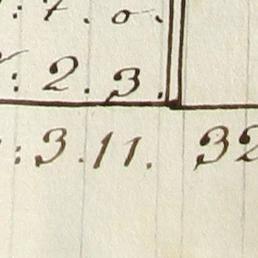 : 7. 0.
: 2. 3.
: 3. 11. 32